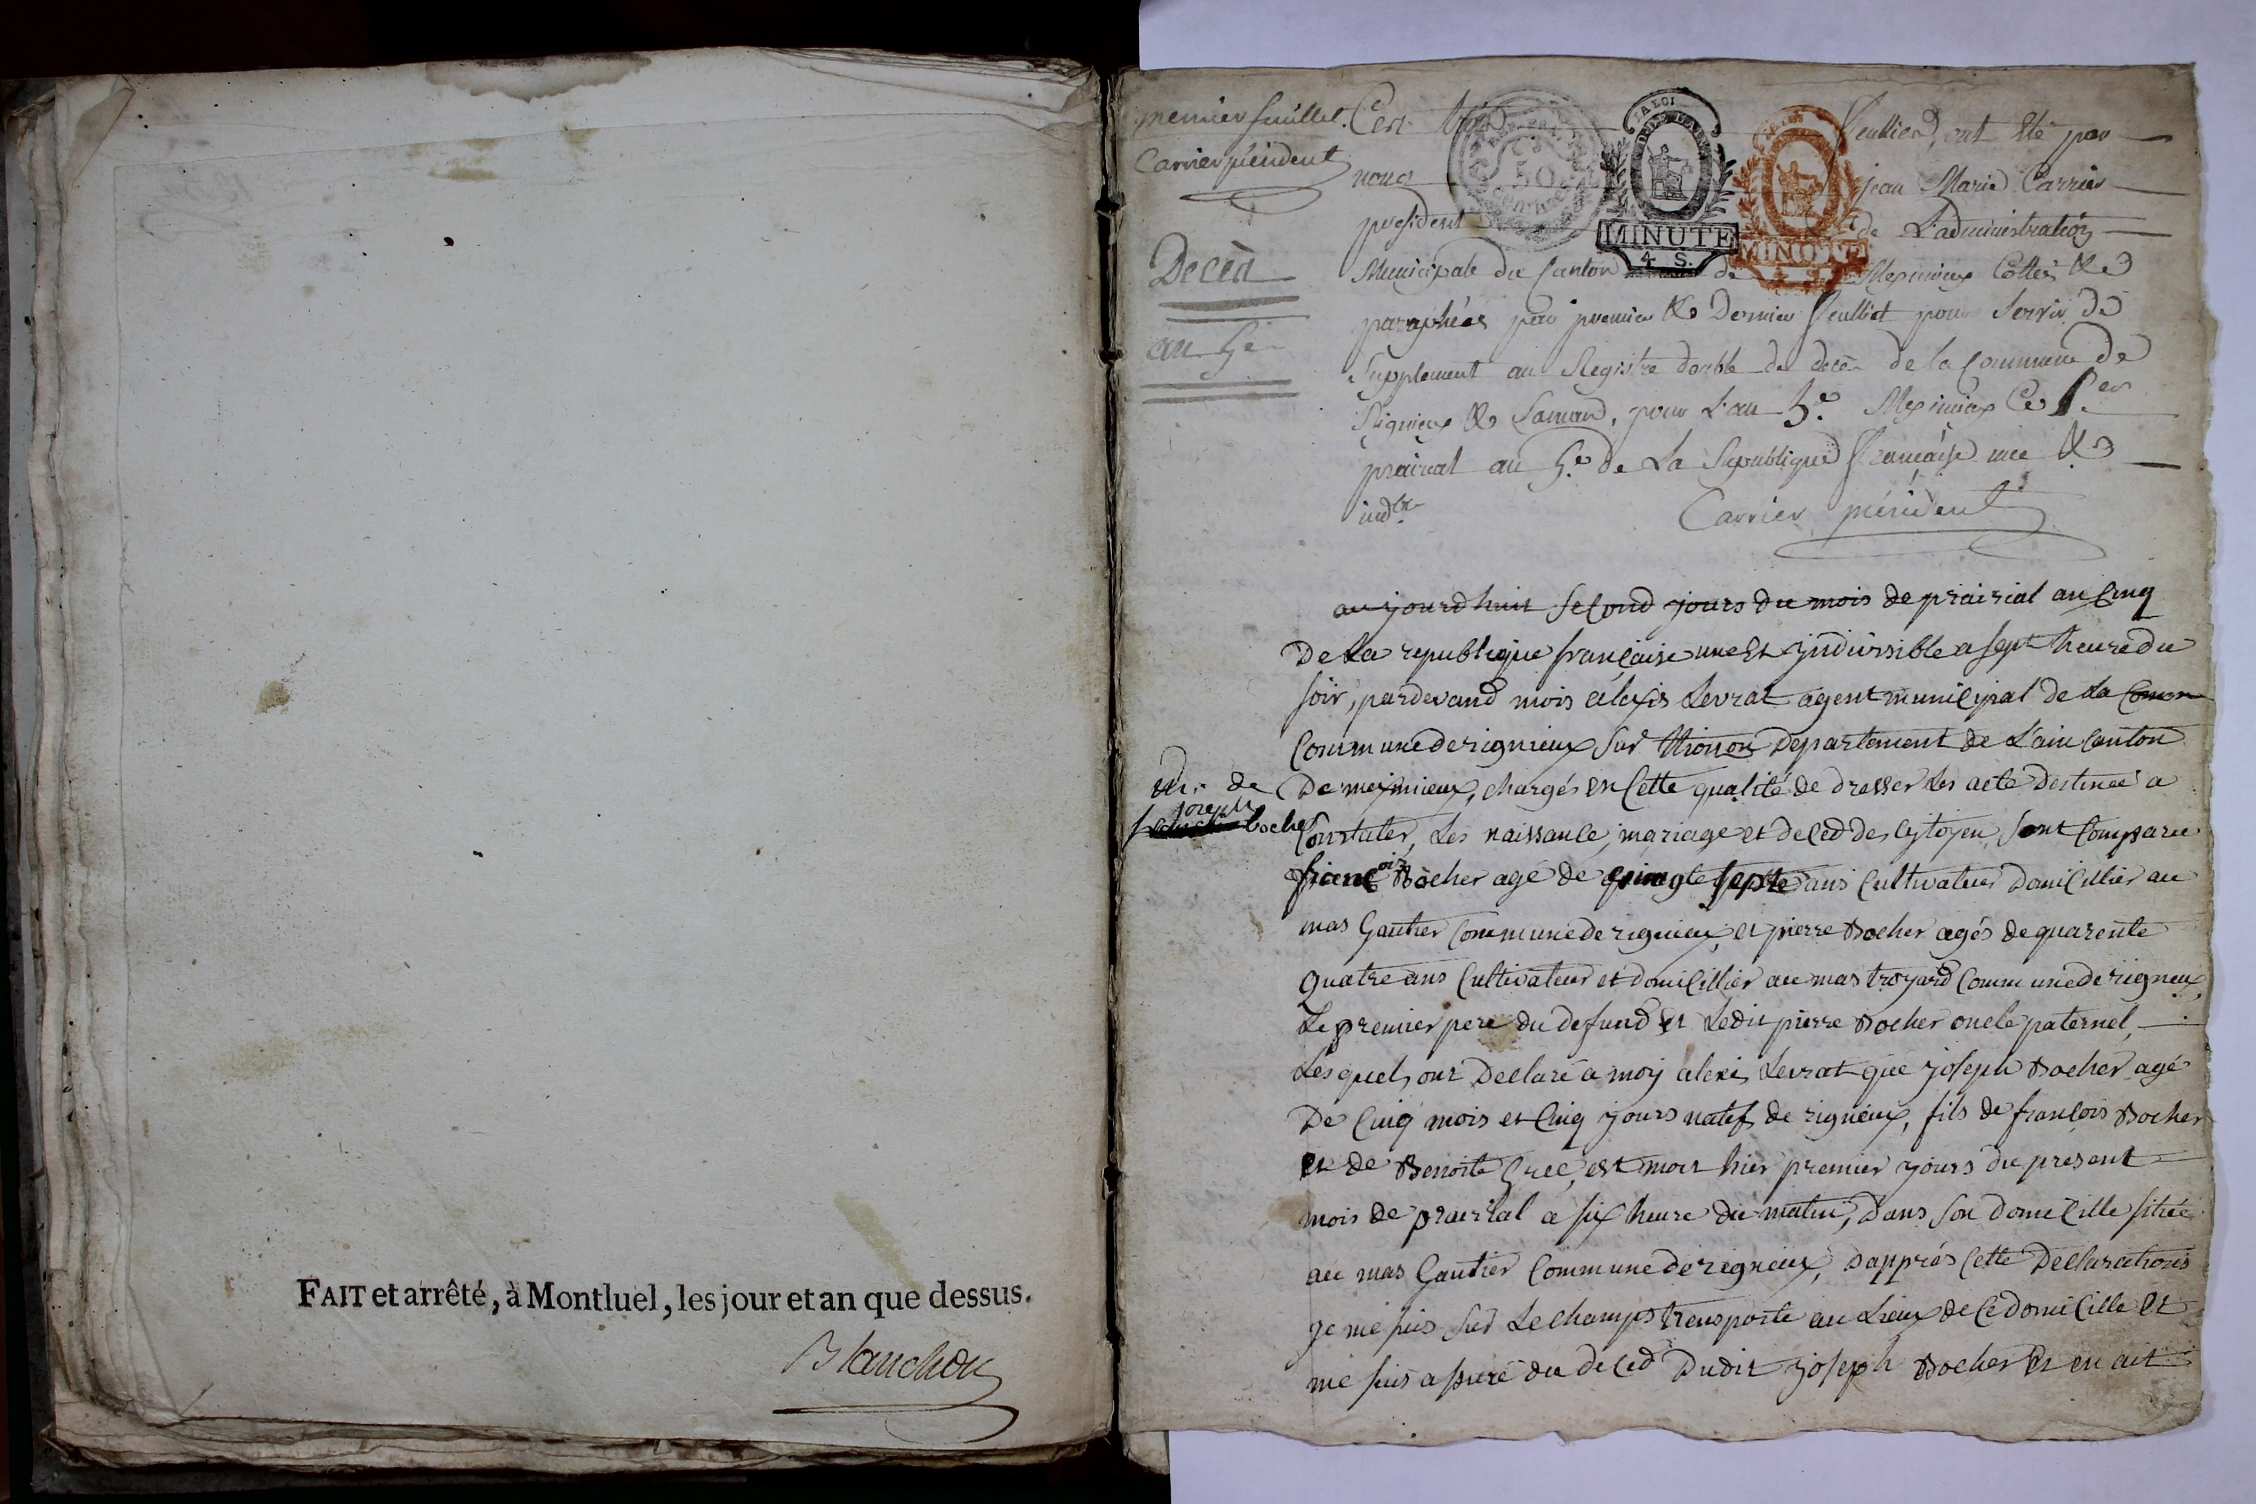 FAIT et arrêté, à Montluel, les jour et an que dessus.
Blanchon
premier feuillet.
Carrier président
Décès
an 5e
Ces trois feuillets ont été par
nous jean Marie Carrier
president de L'administration
Municipale du Canton de Meximieux Cottés &
paraphées par premier & Dernier feulliet pour Servir de
Supplement au Registre double de décès de la Commune de
Rignieux & Samans, pour L'an 5e. Meximieux Ce 1er
prairial an 5e de La Republique française une &
indble
Carrier président
MINUTE
4 S.
MINUTE
aujourdhuit second jours du mois de prairial an Cinq
De La republique française une Et yndivisible a sept heure du
soir, pardevand mois aléxis Levrat agent municipal de la Comm
Commune de rignieux sur departement de L'ain Canton
De meximieux, chargés en Cette qualité de dresser Les acte destineé a
Constater, Les naissance, mariage et deced des Cytoyen, sont Comparu
francois Bocher agé de septe ans Cultivateur domiCillier au
mas Gautier Commune de rignieux, et pierre Bocher agés de quarente
quatre ans Cultivateur et domiCillier au mas troyard Commune de rignieux,
Le premier pere du defund et Ledit pierre Bocher oncle paternel,
Lesquels ont Declaré a moy alexi Levrat que joseph Bocher agé
De Cinq mois et Cinq jours natif de rignieux, fils de françois Bocher
et de Benoite est mort hier premier jours du présent
mois de prairial a six heure du matin, dans son domiCille sitüé
au mas Gautier Commune de rignieux, dapprés Cette Declarations
je me suis sur Le champs transporté au Lieux de Ce domiCille et
me suis assuré du deCed dudit joseph Bocher et en ait
de
joseph
bocher